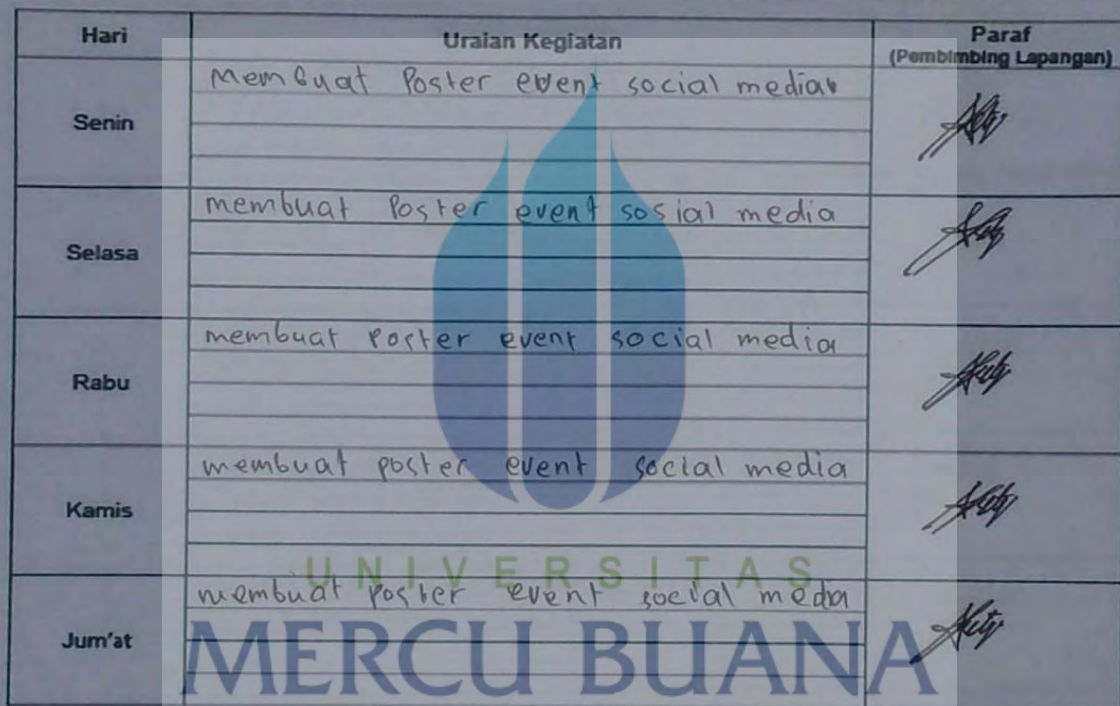 Hari Uraian Kegiatan Paraf
(Pembimbing Lapangan)
Senin
Membuat Poster event social media
Selasa
membuat Poster event sosial media
Rabu
membuat Poster event social media
Kamis
membuat poster event social media
Jum'at
membuat poster event social media
UNIVERSITAS
MERCU BUANA